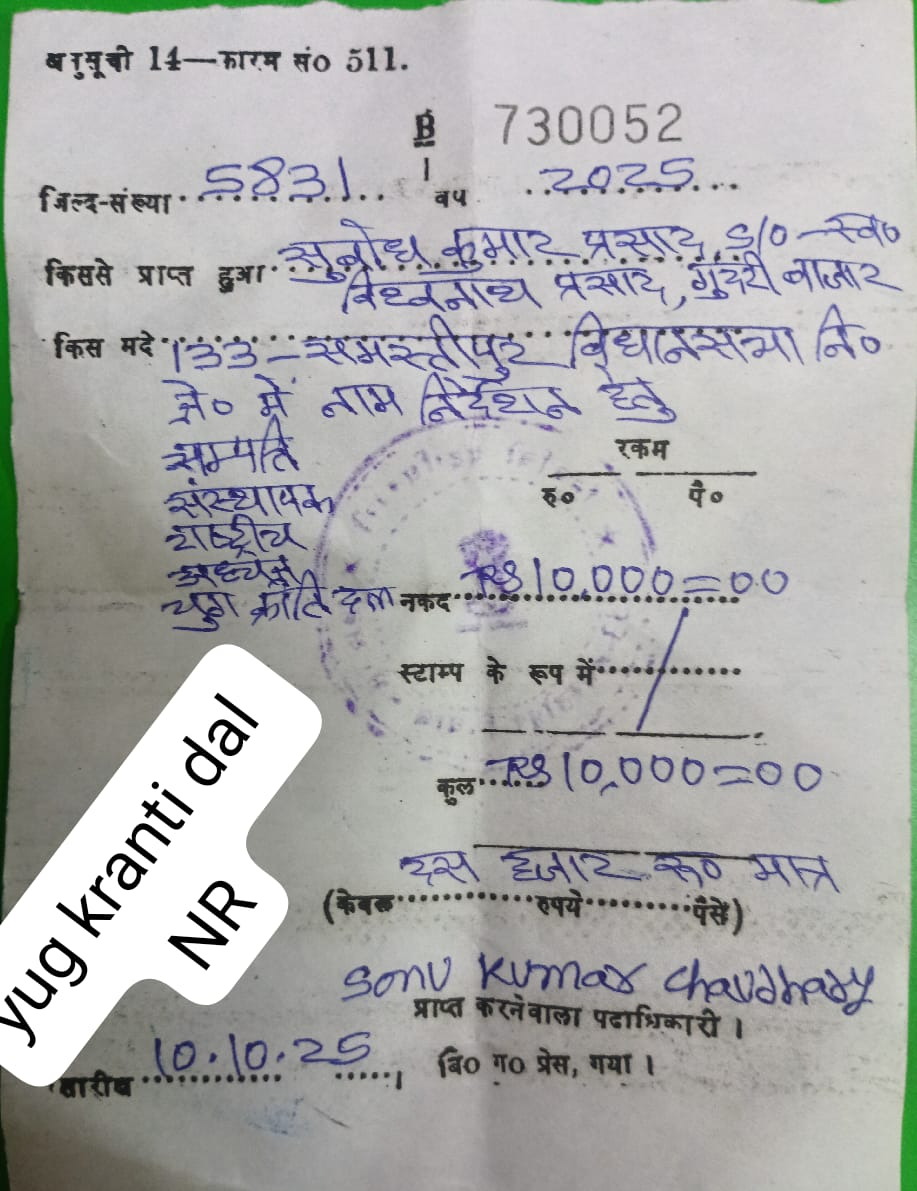 अनुसूची 14—फारम सं० 511.
B 730052
1
जिल्द-संख्या 5831 वर्ष 2025
किससे प्राप्त हुआ सुबोध कुमार प्रसाद, S/O - स्व०
विश्वनाथ प्रसाद, गुदरी बाजार
किस मदे 133 - समस्तीपुर विधानसभा नि०
क्षे० में नाम निर्देशन हेतु
सम्पति
संस्थापक
राष्ट्रीय
अध्यक्ष
युग क्रांति दल
रकम
रु० पै०
नकद RS 10,000=00
स्टाम्प के रूप में
कुल RS 10,000=00
दस हजार रू० मात्र
(केवल रुपये पैसे)
Sonu Kumar Chaudhary
प्राप्त करनेवाला पदाधिकारी ।
तारीख 10.10.25 । बि० ग० प्रेस, गया ।
yug kranti dal
NR